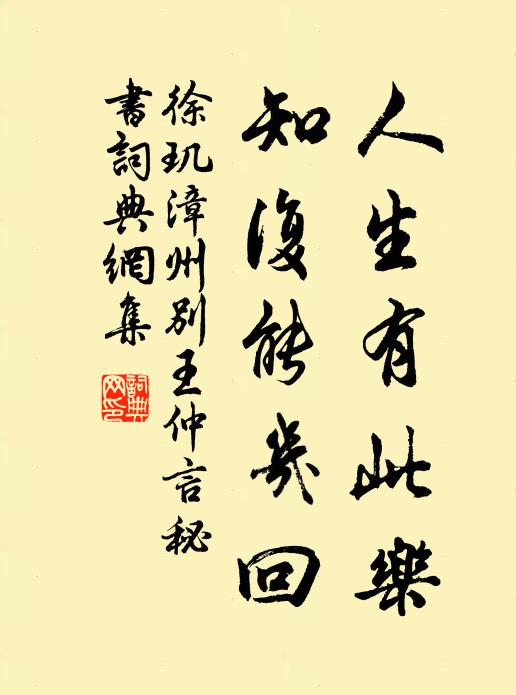 人生有此樂
知復能幾回
徐玑漳州别王仲言秘
書詞典網集
詞典
网印